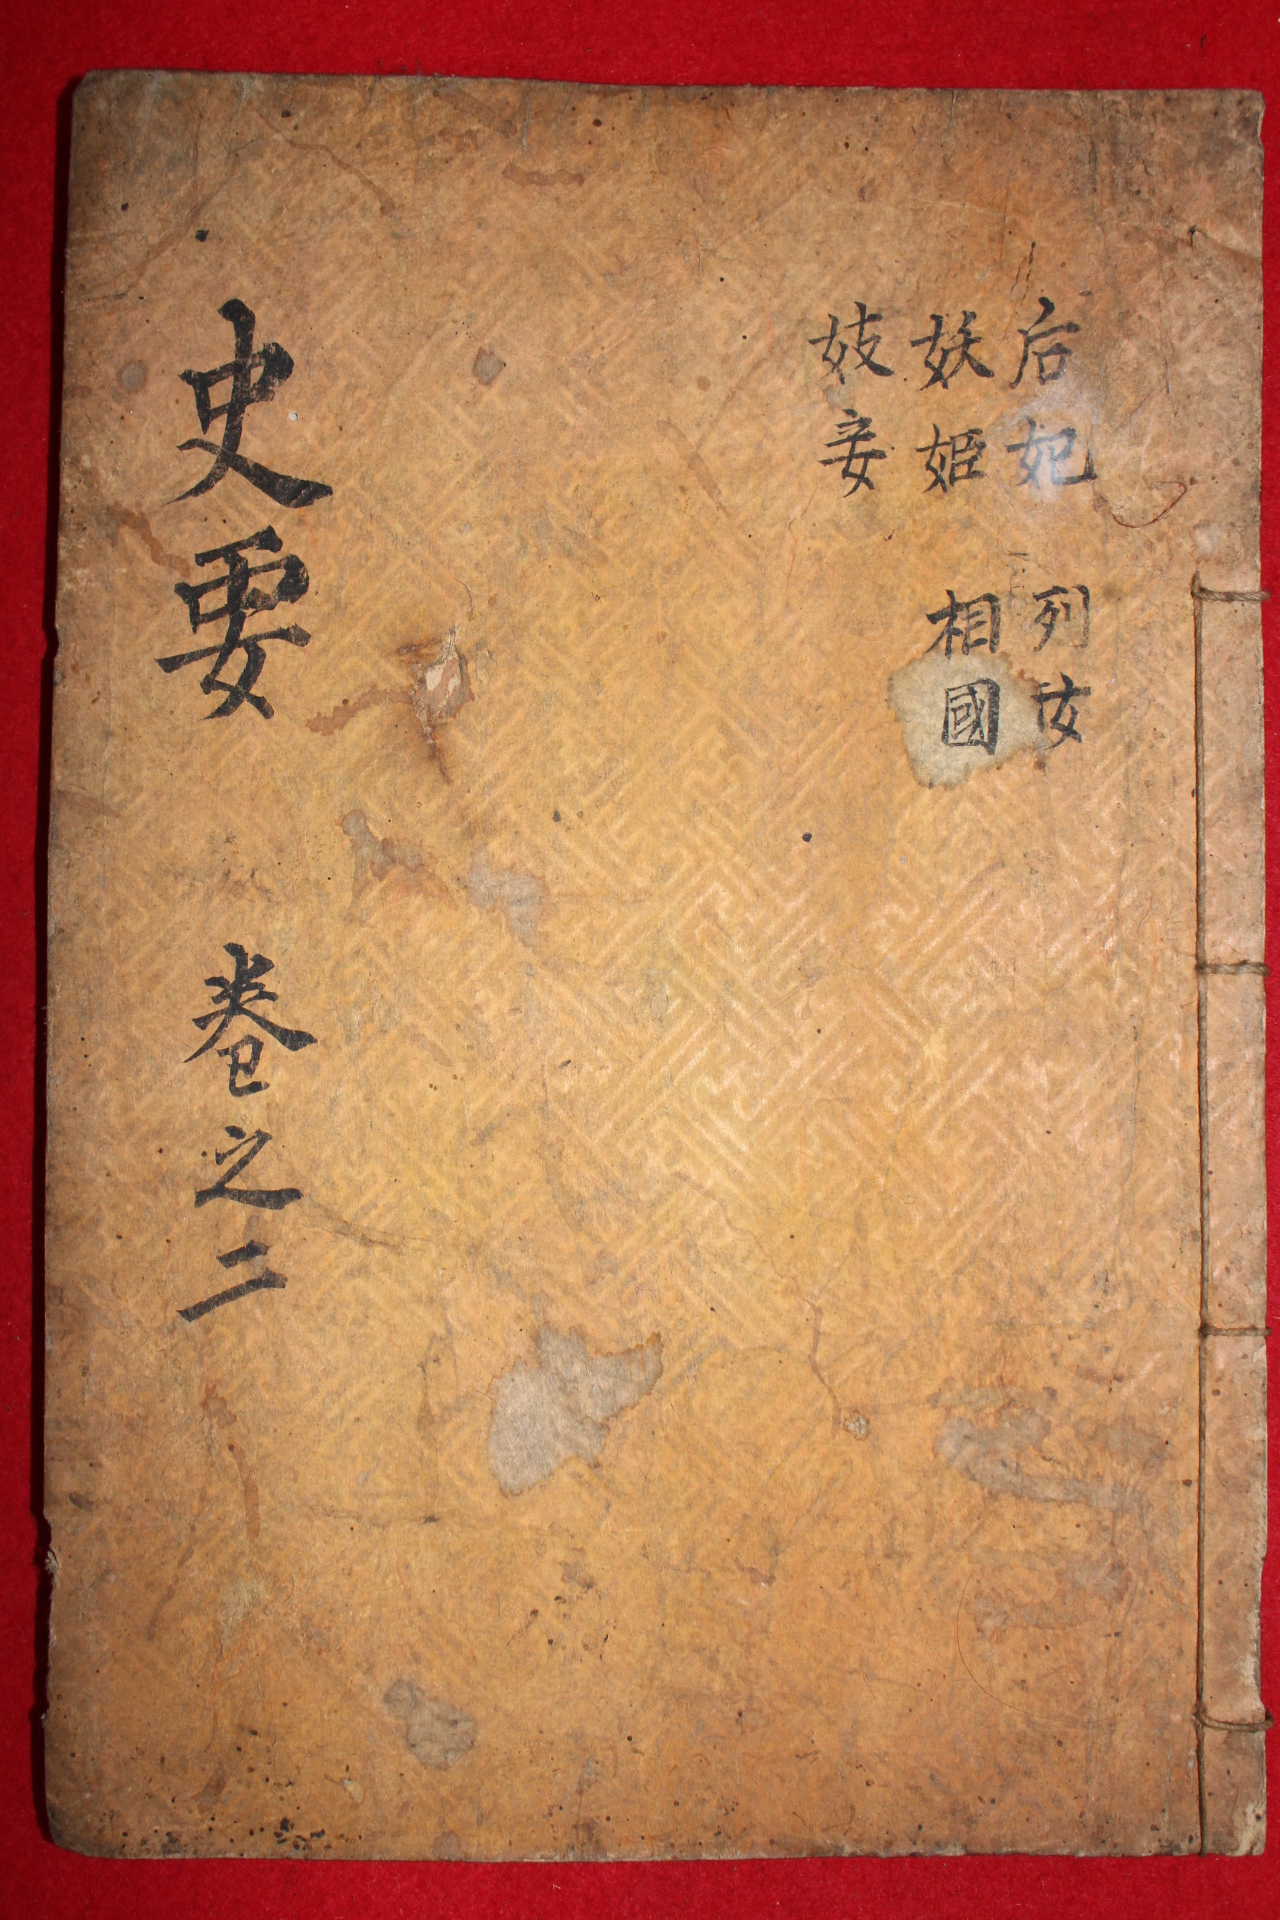 后妃
妖姬
妓妾
列女
相國
史要 卷之二